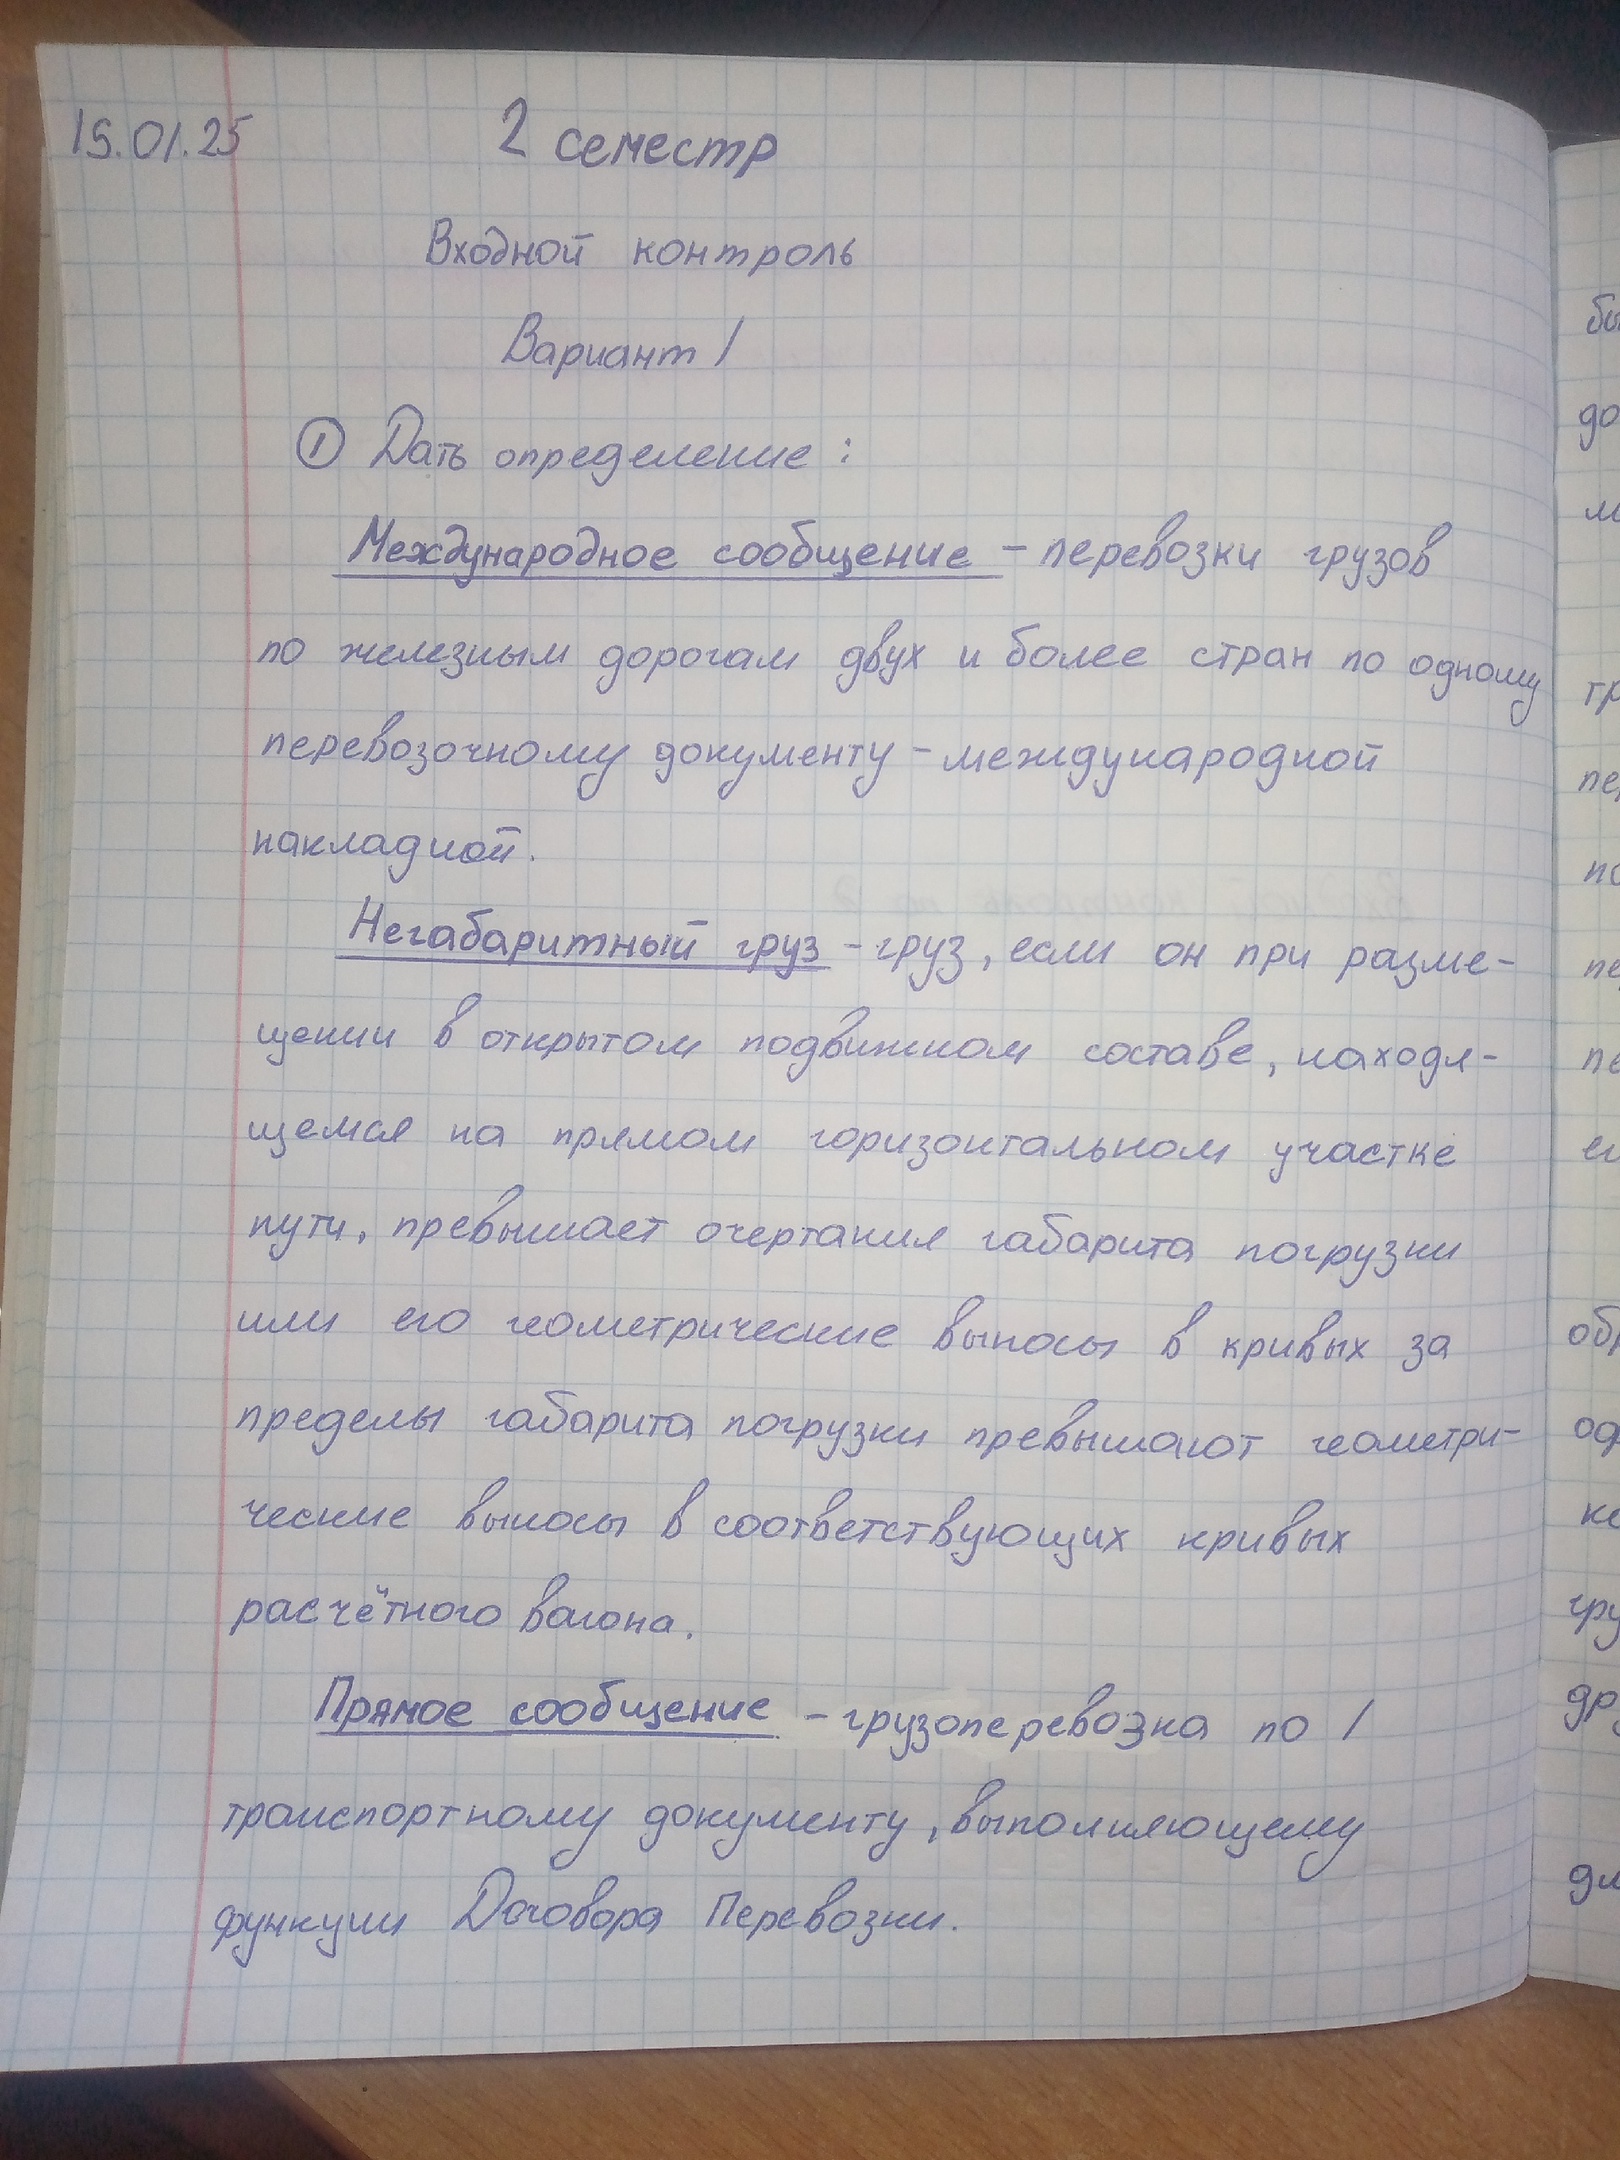 15.01.25
2 семестр
Входной контроль
Вариант 1
① Дать определение:
Международное сообщение - перевозки грузов
по железным дорогам двух и более стран по одному
перевозочному документу - международной
накладной.
Негабаритный груз - груз, если он при разме-
щении в открытом подвижном составе, находя-
щемся на прямом горизонтальном участке
пути, превышает очертания габарита погрузки
или его геометрические выносы в кривых за
пределы габарита погрузки превышают геометри-
ческие выносы в соответствующих кривых
расчётного вагона.
Прямое сообщение - грузоперевозка по 1
транспортному документу, выполняющему
функции Договора Перевозки.